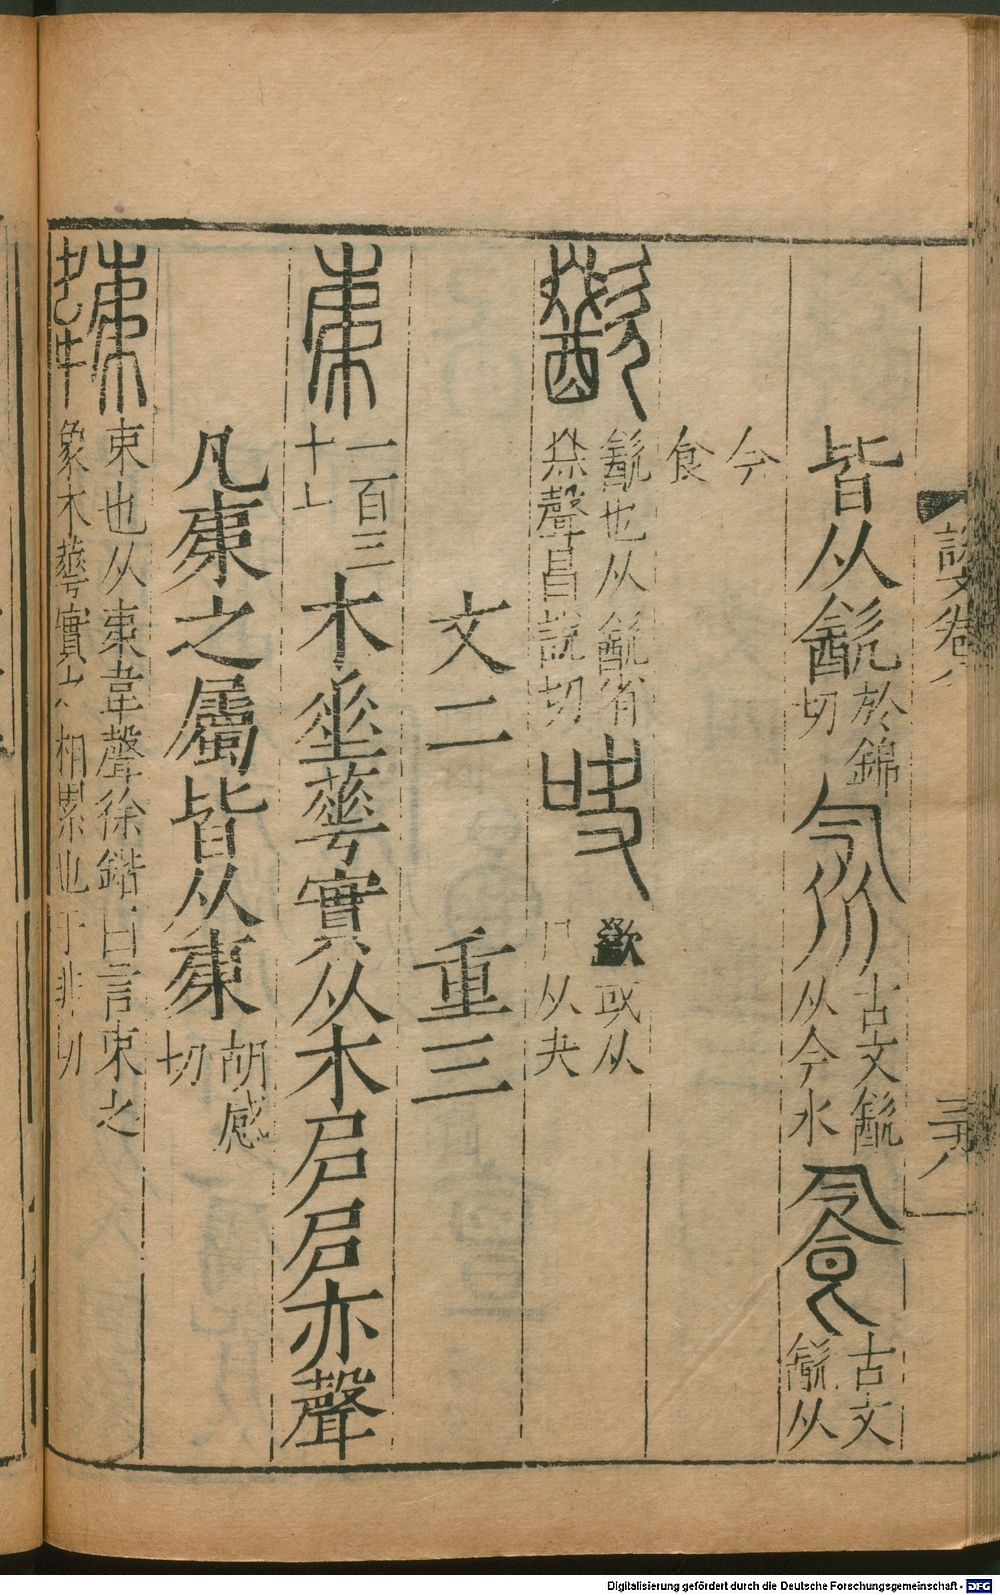 說文卷八
三十八
皆从㱃於錦切 古文㱃从今水 古文㱃从
今食
㱃也从㱃省叕聲昌說切 歠或从口从夬
文二 重三
一百三十 木𠂹華實从木㔾㔾亦聲
凡𣐺之屬皆从𣐺胡感切
束也从𣐺韋聲徐鍇曰言束之
象木華實之相累也于非切
Digitalisierung gefördert durch die Deutsche Forschungsgemeinschaft - DFG